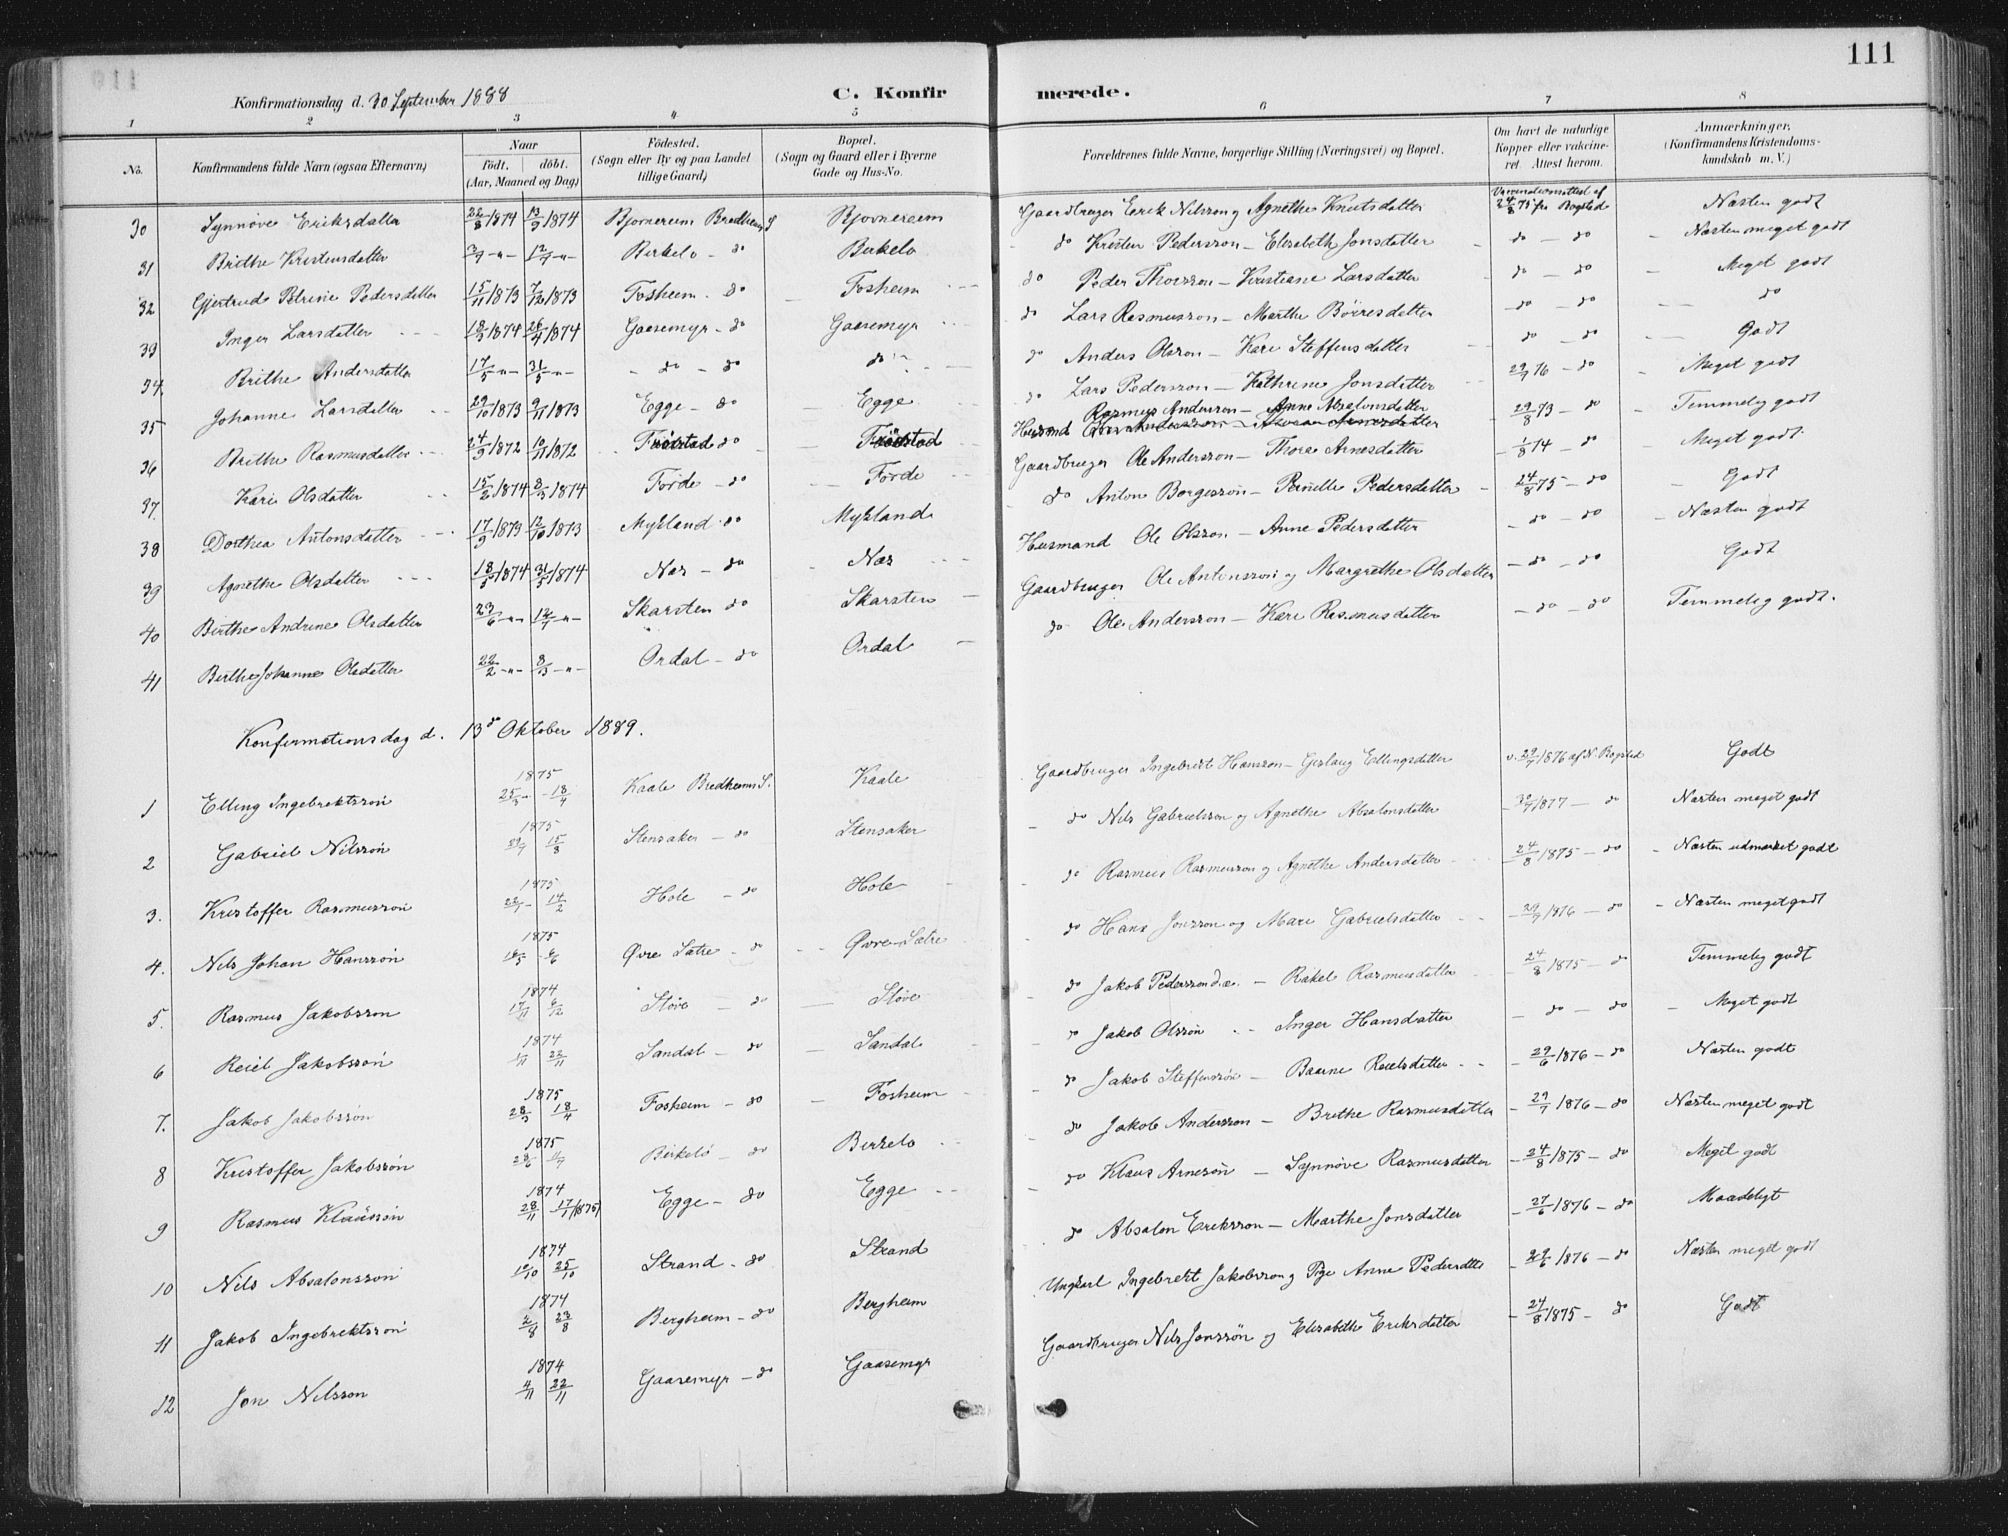 111
Konfirmationsdag d. 30 September 1888 C. Konfirmerede.
1 2 3 4 5 6 7 8
No. Konfirmandens fulde Navn (ogsaa Efternavn) Naar født. døbt. (Aar, Maaned og Dag) Födested. (Sogn eller By og paa Landet tillige Gaard) Bopæl. (Sogn og Gaard eller i Byerne Gade og Hus-No. Forældrenes fulde Navne, borgerlige Stilling (Næringsvei) og Bopæl. Om havt de naturlige Kopper eller vakcineret. Attest herom. Anmærkninger. (Konfirmandens Kristendomskundskab m. V.)
30 Synnøve Eriksdatter 22/8 1874 13/9 1874 Bjornereim Bredheims S Bjornereim Gaardbruger Eerik Nilsson og Agnethe Knutsdatter Vaccinationsattest af 24/8 75 fra Bogstad Næsten godt
31 Brithe Kristensdatter 3/7 -"- 12/7 -"- Birkelo - do Birkelo do Kristen Pedersson - Elisabeth Jonsdatter do - do Næsten meget godt
32 Gjertrud Petrine Pedersdatter 15/11 1873 7/12 1873 Fosheim - do Fosheim do Peder Thorsson - Kristiane Larsdatter do - do Meget godt
33 Inger Larsdatter 18/3 1874 26/4 1874 Gaasemyr - do Gaasemyr do Lars Rasmusson - Marthe Börresdatter do - do do
34. Brithe Andersdatter 17/5 -"- 31/5 -"- - do - do do do Anders Olsson - Kari Steffensdatter do - do Godt
35 Johanne Larsdatter 29/10 1873 9/11 1873 Egge - do Egge do Lars Pedersson - Kathrine Jonsdatter 29/7 76 - do Meget godt
36 Brithe Rasmusdatter 24/9 1872 10/11 1872 do Husmand Rasmus Andersson - Anne Absalonsdatter 29/8 73 - do Temmelig godt
37. Kari Olsdatter 15/2 1874 8/3 1874 Förde - do Förde Gaardbruger Ole Andersson - Thore Arnesdatter 1/8 74 - do Meget godt.
38 Dorthea Antonsdatter 17/9 1873 12/10 1873 Mykland - do Mykland do Anton Borgesson - Pernille Pedersdatter 24/8 75 - do Godt
39 Agnethe Olsdatter 18/5 1874 31/5 1874 Nos - do Nos Husmand Ole Olsson - Anne Pedersdatter do - do Næsten godt
40 Birthe Andrine Olsdatter 23/6 -"- 12/7 -"- Skarsten do Skarsten Gaardbruger Ole Antonsson og Margrethe Olsdatter - do - do Godt
41 Birthe Johanne Olsdatter 22/2 -"- 8/3 -"- Ordal - do Ordal do Ole Andersson - Kari Rasmusdatter - do - do Temmelig godt.
Konfirmationsdag d. 13de Oktober 1889.
1 Elling Ingebrektssön 1875 25/3 - 18/4 Kaale Bredheims S. Kaale Gaardbruger Ingebrekt Hansson - Gislaug Ellingsdatter v. 29/7 1876 af N. Bogstad Godt
2 Gabriel Nilssön 1875 29/7 15/8 Stensaker - do Stensaker do Nils Gabrielsson og Agnethe Absalonsdatter 30/7 1877 - do Næsten meget godt
3. Kristoffer Rasmusson 1875 22/1 - 14/2 Hole - do Hole do Rasmus Rasmusson og Agnethe Andersdatter 24/8 1875 - do Næsten udmerket godt
4. Nils Johan Hanssön 1875 16/5 6/6 Øvre Sætre - do Øvre Sætre do Hans Jonsson og Mari Gabrielsdatter 29/7 1876 - do Næsten meget godt
5. Rasmus Jakobsson 1874 17/11 6/12 Støve - do Støve do Jakob Pedersson - Rakel Rasmusdatter 24/8 1875 - do Temmelig godt
6 Reiel Jakobssön 1874 1/11 22/11 Sandal - do Sandal do Jakob Olssön - Inger Hansdatter - do - do Meget godt
7. Jakob Jakobssøn 1875 28/3 18/4 Fosheim - do Fosheim do Jakob Steffenssön - Baarne Reielsdatter 29/6 1876 - do Næsten godt
8 Kristoffer Jakobssön 1875 28/6 11/7 Birkelo - do Birkelo do Jakob Andersson - Brithe Rasmusdatter 29/7 1876 - do Næsten meget godt
9 Rasmus Klaussön 1874 28/11 17/1 (1875) Egge - do Egge do Klaus Arnesön - Synnöve Rasmusdatter 24/8 1875 - do Meget godt
10 Nils Absalonsson 1874 10/10 25/10 Strand - do Strand do Absalon Eriksson - Marthe Jonsdatter 27/6 1876 - do Maadeligt
11 Jakob Ingebrektsson 1874 2/8 23/8 Bergheim - do Bergheim Ungkarl Ingebrekt Jakobsson og Pige Anne Pedersdtt 29/6 1876 - do Næsten meget godt
12 Jon Nilsson 1874 4/11 22/11 Gaasemyr - do Gaasemyr Gaardbruger Nils Jonssön og Elisabethe Eriksdatter 24/8 1875 - do Godt